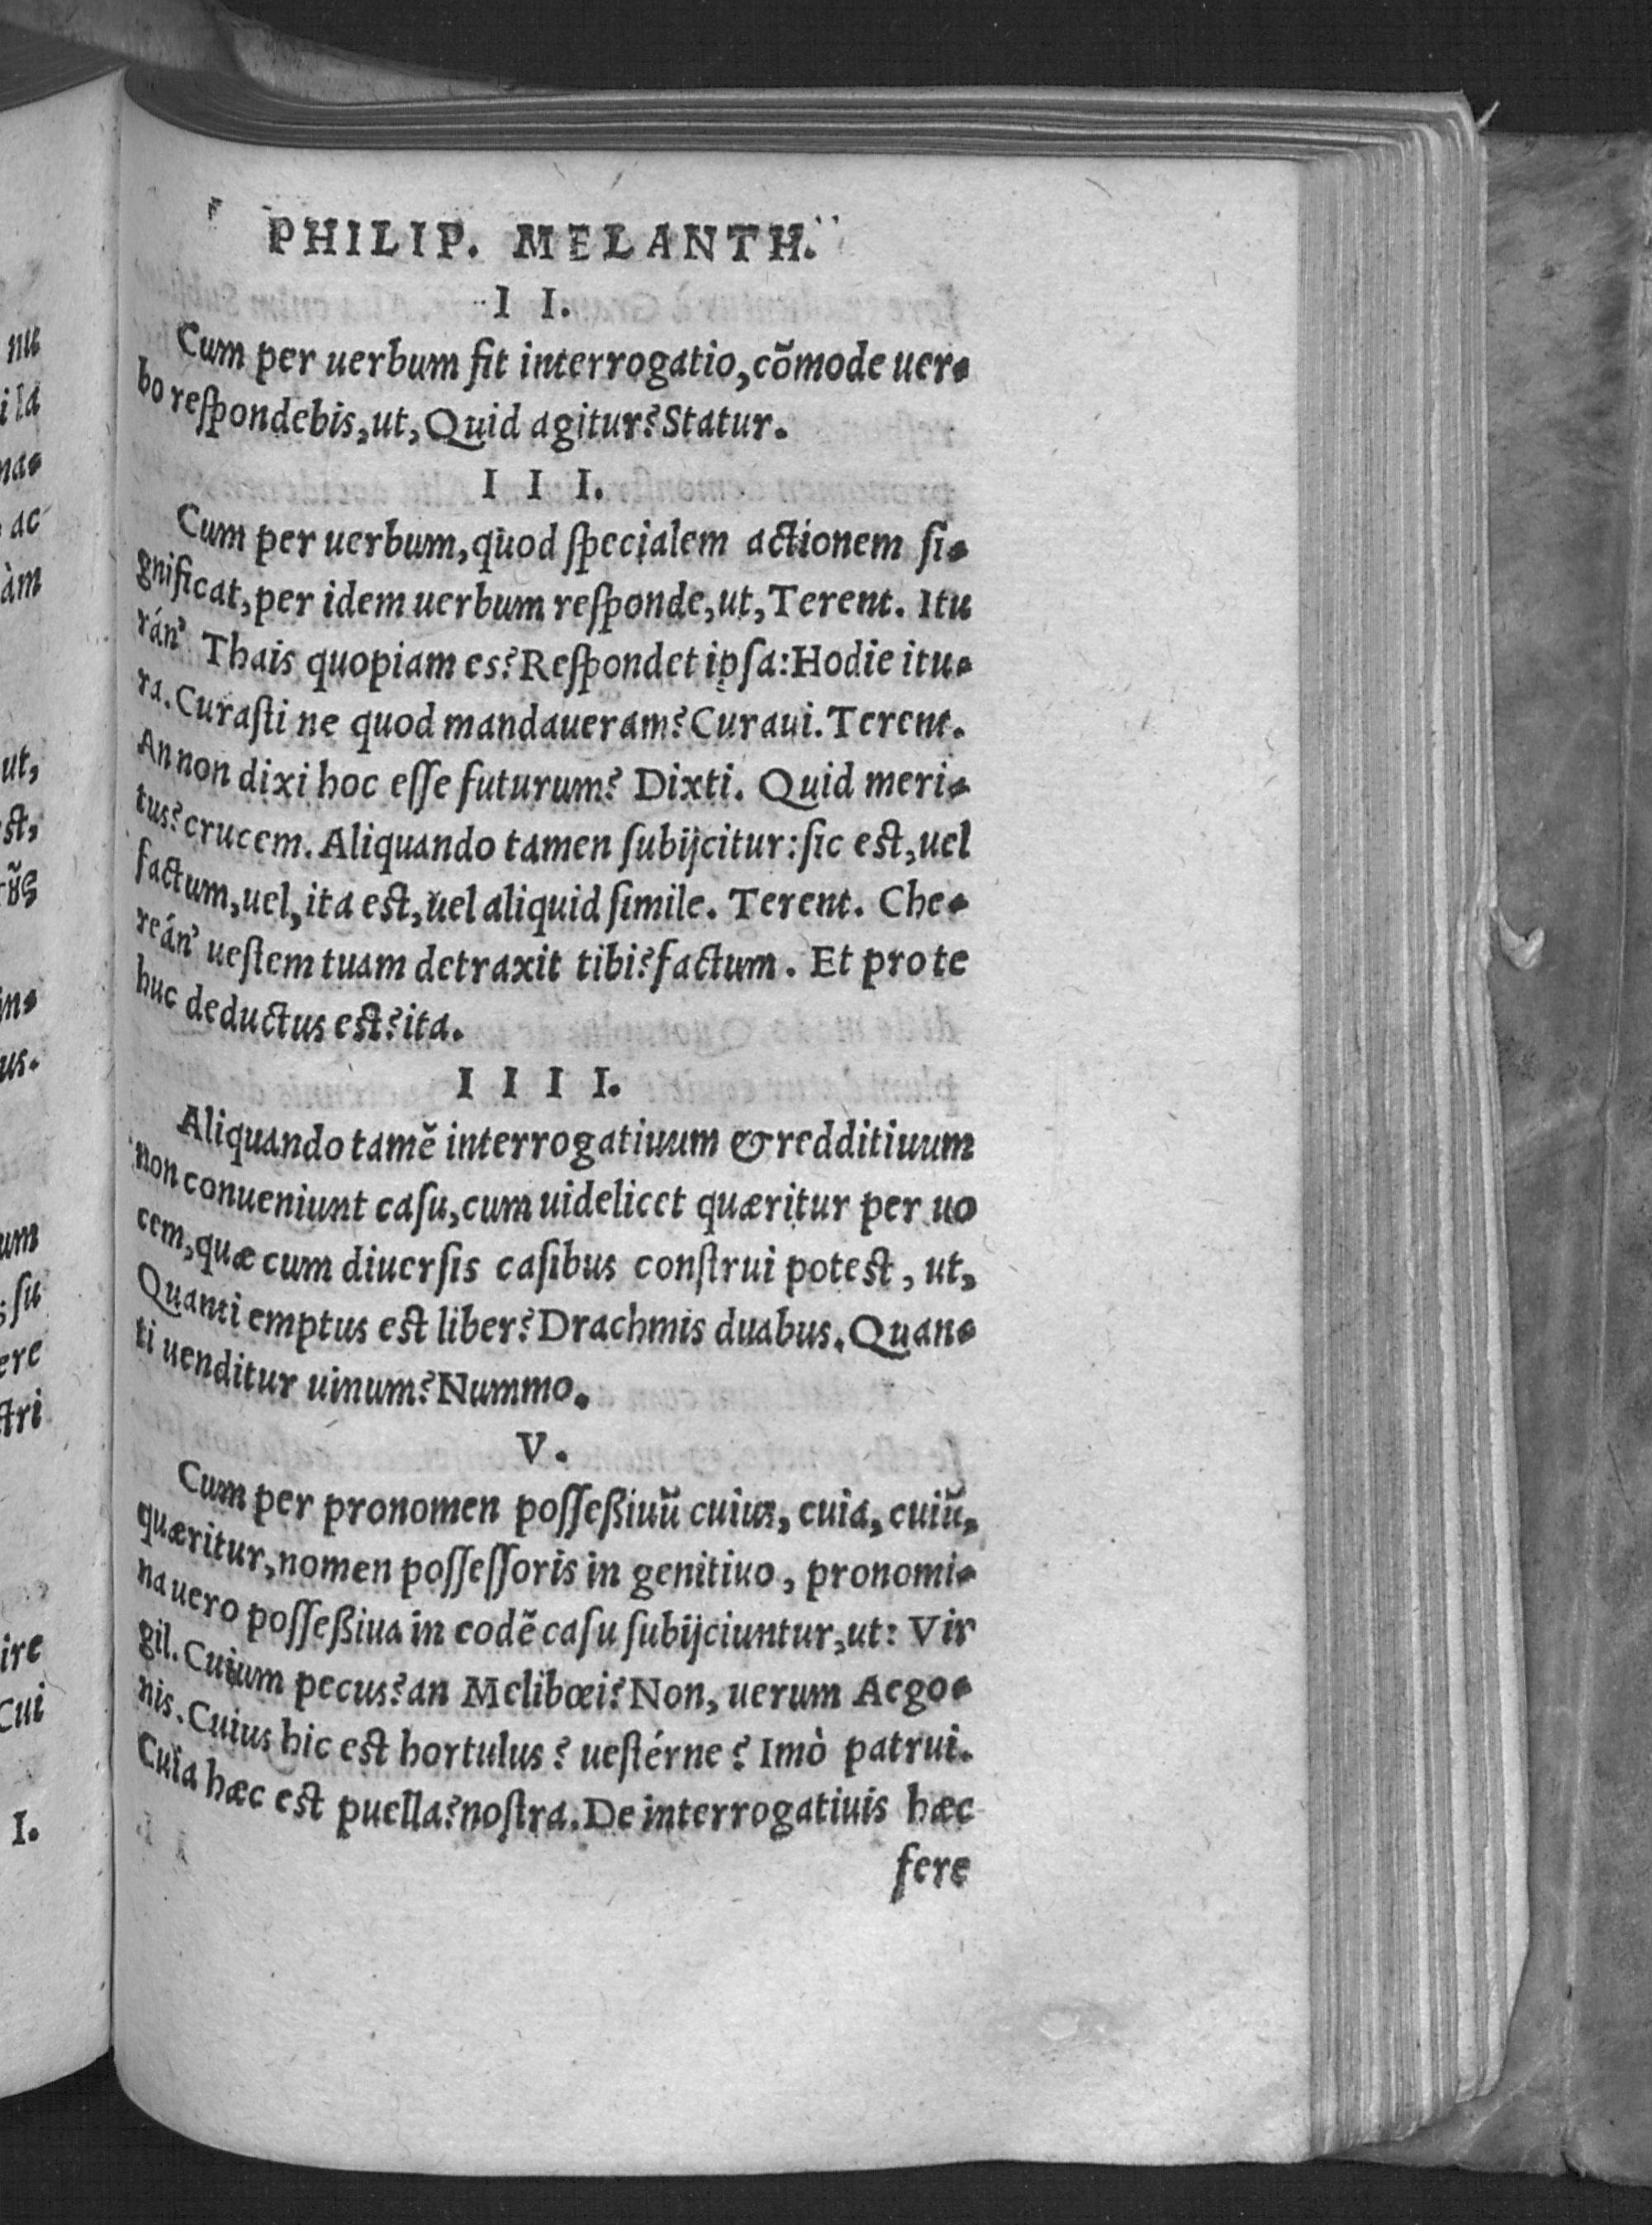 PHILIP. MELANTH.
II.
Cum per uerbum fit interrogatio, cõmode uer-
bo reſpondebis, ut, Quid agitur? Statur.
III.
Cum per uerbum, quod ſpecialem actionem ſi-
gnificat, per idem uerbum reſponde, ut, Terent. Itu
rán' Thais quopiam es? Reſpondet ipſa: Hodie itu-
ra. Curaſti ne quod mandaueram? Curaui. Terent.
An non dixi hoc eſſe futurum? Dixti. Quid meri-
tus? crucem. Aliquando tamen ſubijcitur: ſic eſt, uel
factum, uel, ita eſt, uel aliquid ſimile. Terent. Che-
reán' ueſtem tuam detraxit tibi? factum. Et pro te
huc deductus eſt? ita.
IIII.
Aliquando tamẽ interrogatiuum & redditiuum
non conueniunt caſu, cum uidelicet quæritur per uo
cem, quæ cum diuerſis caſibus conſtrui poteſt, ut,
Quanti emptus eſt liber? Drachmis duabus. Quan-
ti uenditur uinum? Nummo.
V.
Cum per pronomen poſſeßiuũ cuius, cuia, cuiũ,
quæritur, nomen poſſeſſoris in genitiuo, pronomi-
na uero poſſeßiua in eodẽ caſu ſubijciuntur, ut: Vir
gil. Cuium pecus? an Melibœi? Non, uerum Aego-
nis. Cuius hic eſt hortulus? ueſtérne? Imò patrui.
Cuia hæc eſt puella? noſtra. De interrogatiuis hæc
fere
nu
i la
ac
àm
ut,
us.
um
ſu
ere
ire
cui
I.